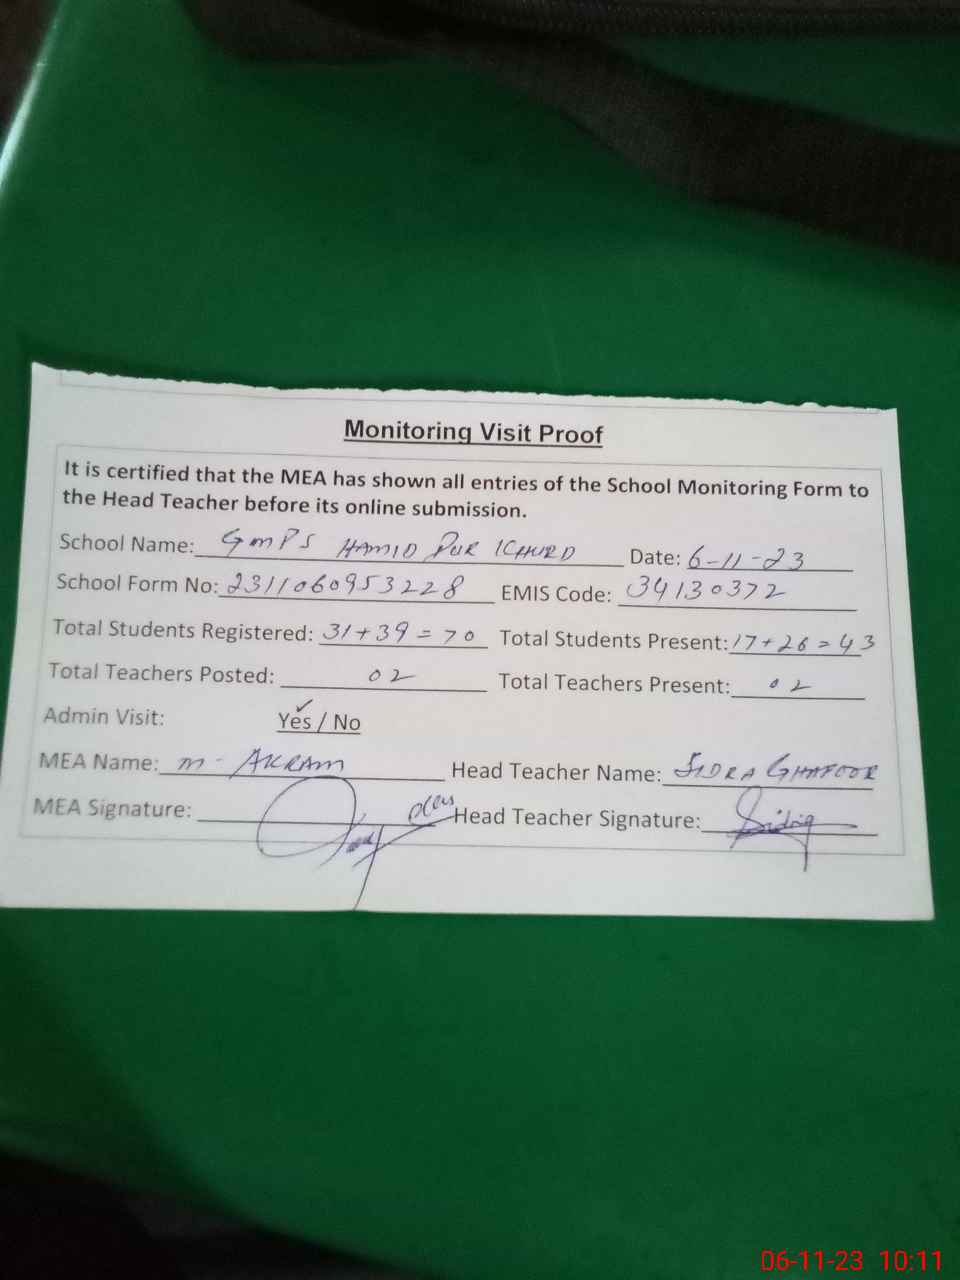 Monitoring Visit Proof
It is certified that the MEA has shown all entries of the School Monitoring Form to
the Head Teacher before its online submission.
School Name: GMPS HAMID PUR KHURD Date: 6-11-23
School Form No: 2311060953228 EMIS Code: 34130372
Total Students Registered: 31+39=70 Total Students Present: 17+26=43
Total Teachers Posted: 02 Total Teachers Present: 02
Admin Visit: Yes / No
MEA Name: M. AKRAM Head Teacher Name: SIDRA GHAFOOR
MEA Signature: Head Teacher Signature:
06-11-23 10:11